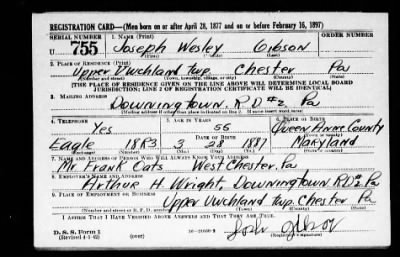 REGISTRATION CARD—(Men born on or after April 28, 1877 and on or before February 16, 1897)
SERIAL NUMBER 1. NAME (Print) ORDER NUMBER
U 755 Joseph Wesley Gibson
(First) (Middle) (Last)
2. PLACE OF RESIDENCE (Print)
Upper Uwchland twp. Chester Pa
(Number and street) (Town, township, village, or city) (County) (State)
[THE PLACE OF RESIDENCE GIVEN ON THE LINE ABOVE WILL DETERMINE LOCAL BOARD
JURISDICTION; LINE 2 OF REGISTRATION CERTIFICATE WILL BE IDENTICAL]
3. MAILING ADDRESS
Downingtown, RD#2, Pa
[Mailing address if other than place indicated on line 2. If same insert word same]
4. TELEPHONE 5. AGE IN YEARS 6. PLACE OF BIRTH
Yes 55 Queen Anne County
DATE OF BIRTH
Eagle 18R3 3 28 1887 Maryland
7. NAME AND ADDRESS OF PERSON WHO WILL ALWAYS KNOW YOUR ADDRESS
Mr. Frank Oats West Chester, Pa
8. EMPLOYER'S NAME AND ADDRESS
Arthur H. Wright, Downingtown RD#2, Pa
9. PLACE OF EMPLOYMENT OR BUSINESS
Upper Uwchland twp. Chester Pa
(Number and street or R. F. D. number) (Town) (County) (State)
I AFFIRM THAT I HAVE VERIFIED ABOVE ANSWERS AND THAT THEY ARE TRUE.
D. S. S. Form 1
(Revised 4-1-42) (over) (Registrant's signature)